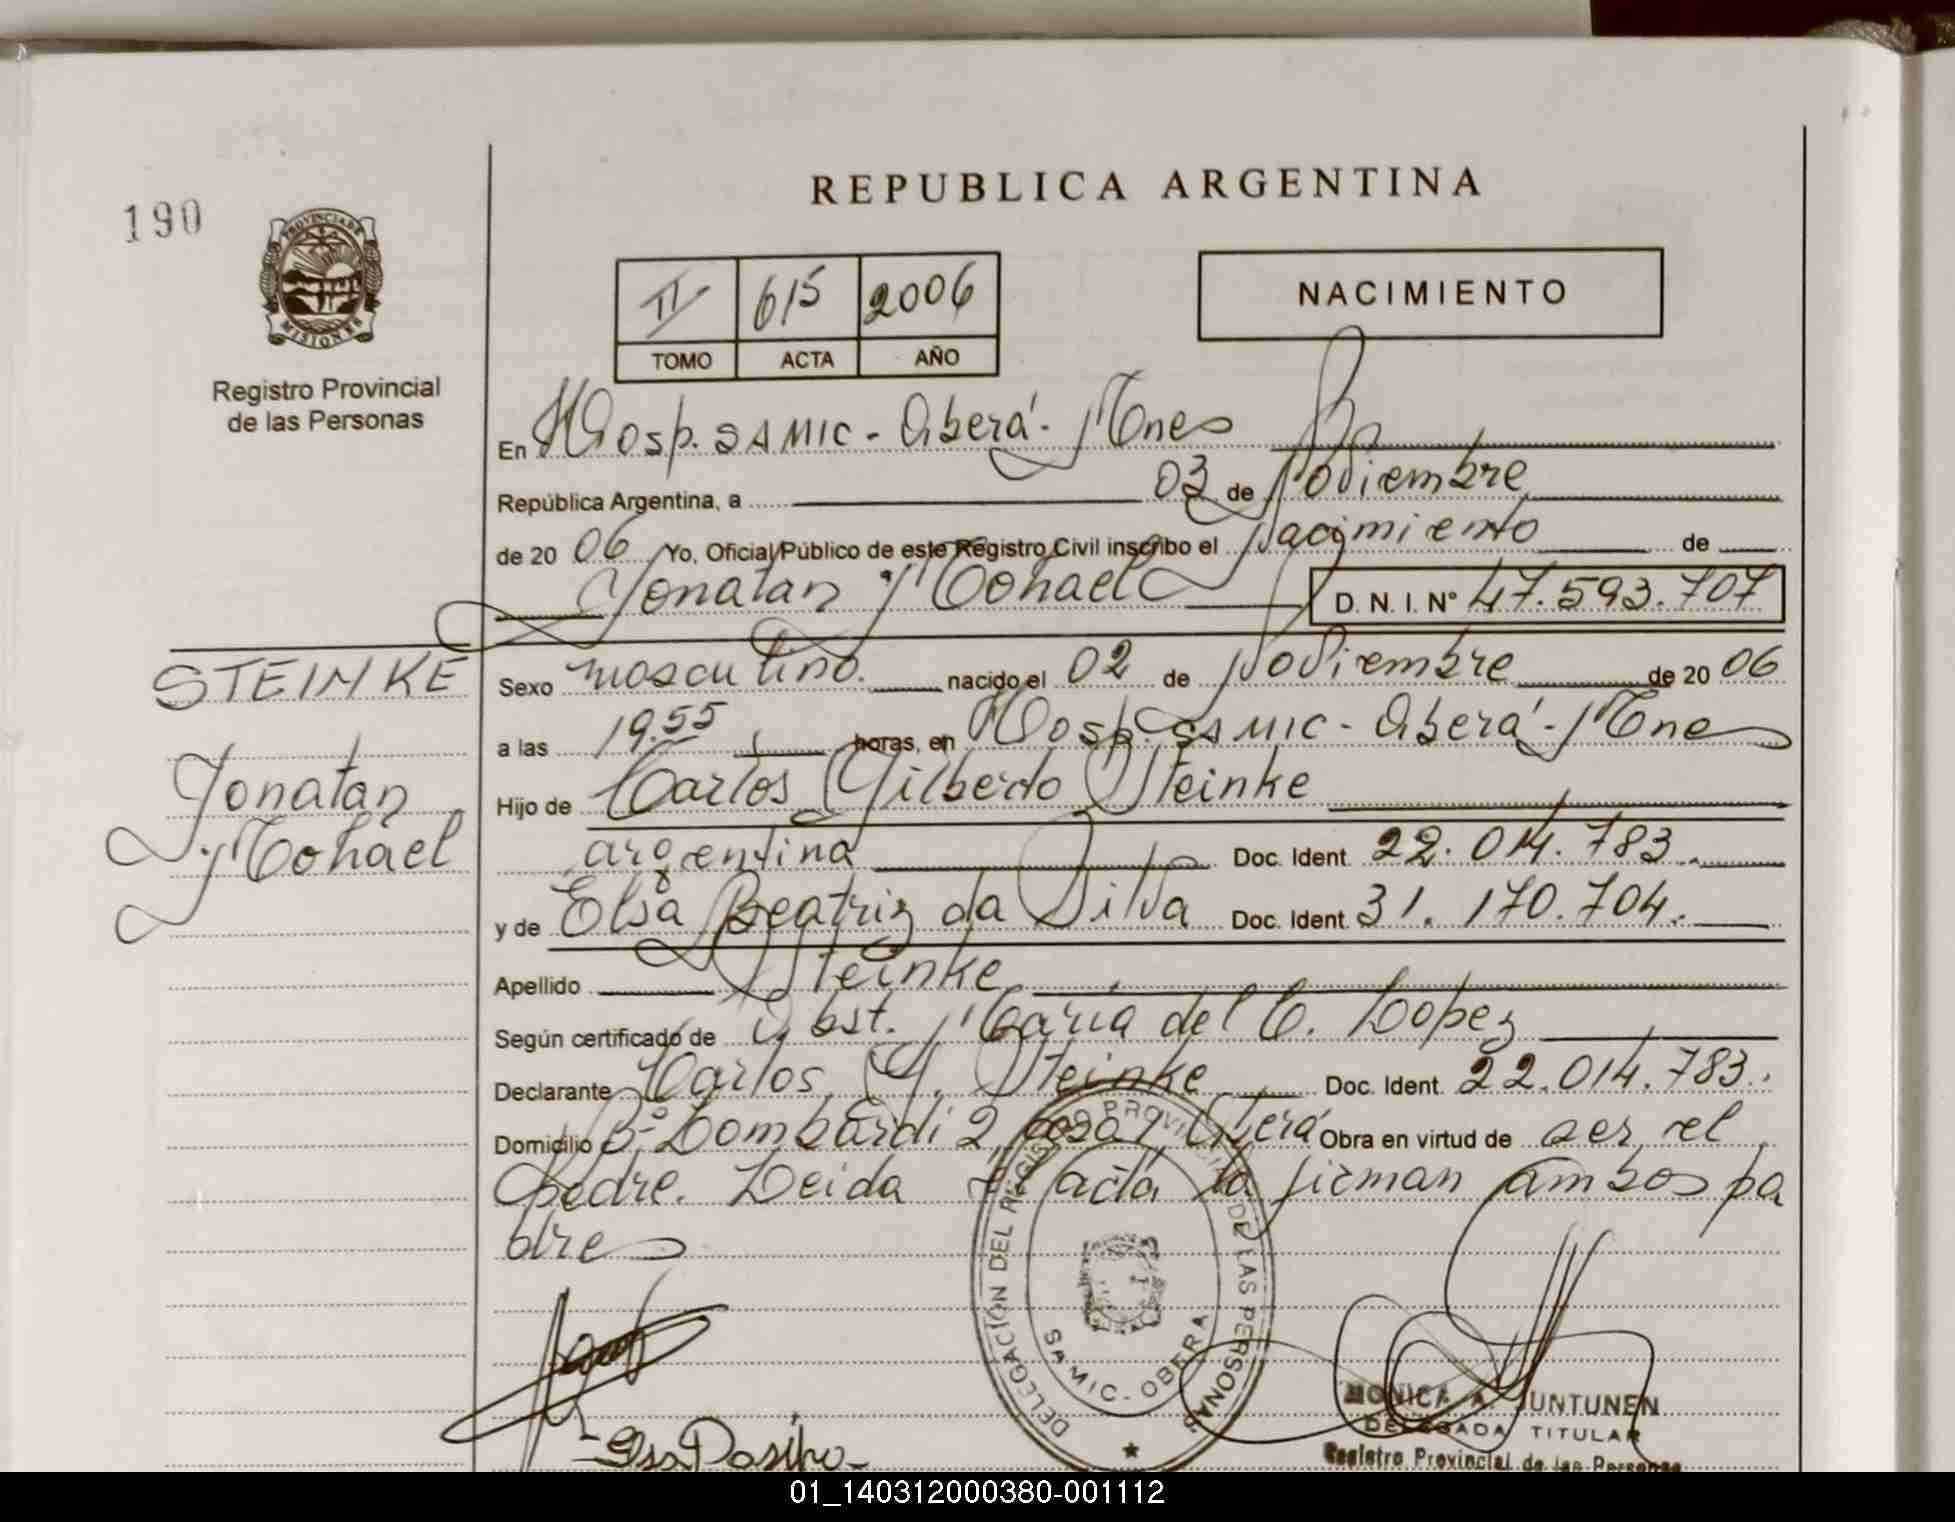 190
PROVINCIA DE
MISIONES
Registro Provincial
de las Personas
REPUBLICA ARGENTINA
II 615 2006
TOMO ACTA AÑO
NACIMIENTO
En Hosp. SAMIC - Oberá - Mnes
República Argentina, a 03 de Noviembre
de 20 06 Yo, Oficial Público de este Registro Civil inscribo el Nacimiento de
Yonatan Mohael D. N. I. Nº 47.593.707
STEINKE
Yonatan
Mohael
Sexo masculino. nacido el 02 de Noviembre de 20 06
a las 19.55 horas, en Hosp. SAMIC - Oberá - Mnes
Hijo de Carlos Gilberto Steinke
argentina Doc. Ident. 22.014.783.
y de Elsa Beatriz da Silva Doc. Ident. 31.170.704.
Apellido Steinke
Según certificado de Obst. María del C. Lopez
Declarante Carlos G. Steinke Doc. Ident. 22.014.783.
Domicilio Bº Lombardi 2 Oberá Obra en virtud de ser el
Padre. Leida el acta la firman ambos pa
dres
DELEGACIÓN DEL REGISTRO PROVINCIAL DE LAS PERSONAS
SAMIC - OBERA
MONICA A. JUNTUNEN
DELEGADA TITULAR
Registro Provincial de las Personas
01_140312000380-001112